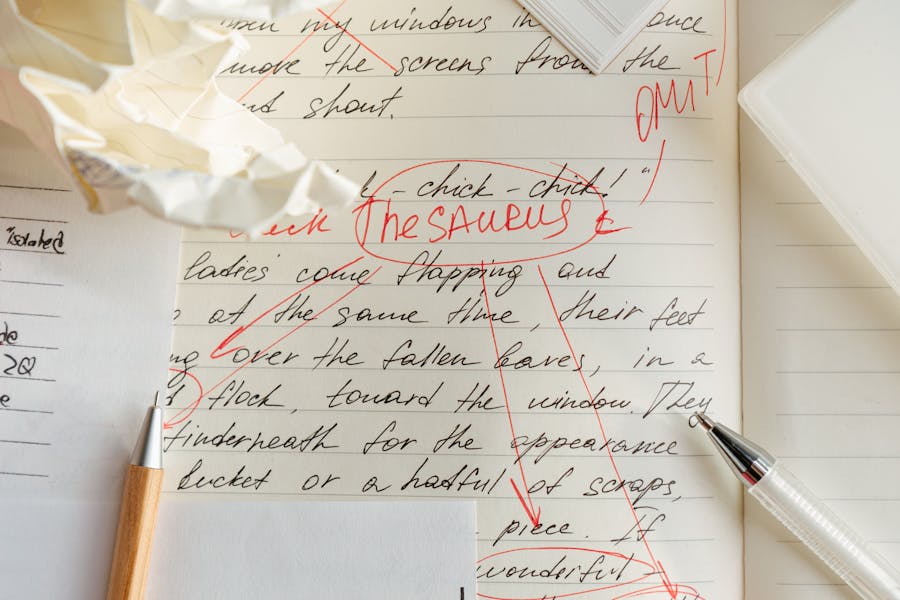 my windows in once
move the screens from the
shout.
OMIT
- chick - chick! "
THESAURUS
ladies come flapping and
at the same time, their feet
over the fallen leaves, in a
flock, toward the window. They
underneath for the appearance
bucket or a hatful of scraps,
piece. If
wonderful -
"isolated
2Q